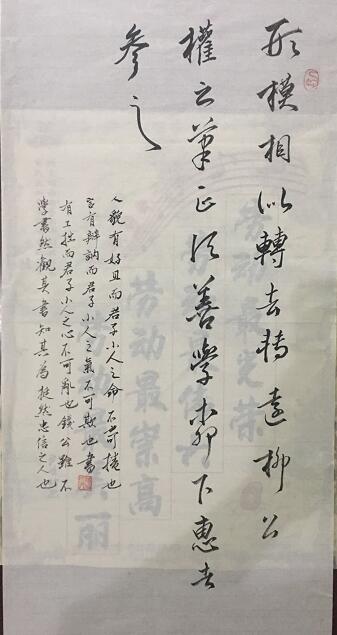 形模相似轉去轉遠柳公
權之筆正須善學柳下惠者
參之
人貌有好丑而君子小人之不可掩也
言有辯訥而君子小人之氣不可欺也書
有工拙而君子小人之心不可亂也錢公雖不
學書然觀其書知其為挺然忠信之人也
劳动最光荣
劳动最崇高
丽